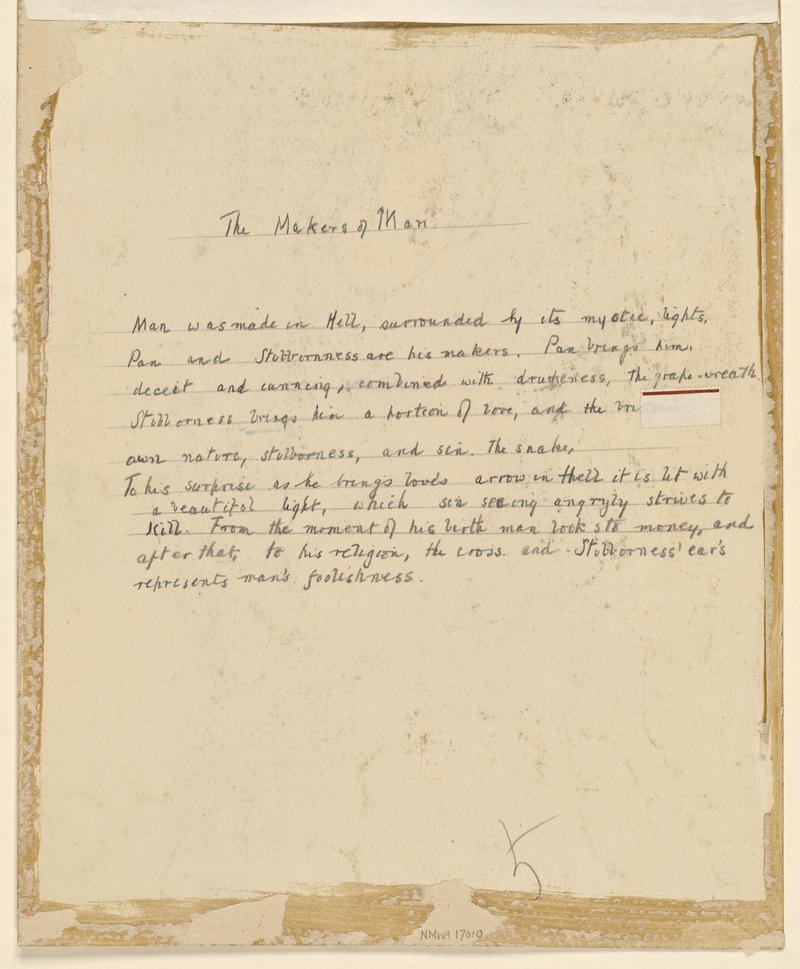 The Makers of Man.
Man was made in Hell, surrounded by its mystic, lights,
Pan and Stubbornness are his makers. Pan brings him,
deceit and cunning, combined with drukeness, the grape-wreath.
Stubborness brings him a portion of love, and the
own nature, stubborness, and sin. The snake,
To his surprise as he brings loves arrow in Hell it is lit with
a beautiful light, which sin seeing angryly strives to
kill. From the moment of his birth man looks to money, and
after that, to his religion, the cross. and Stubborness' ear's
represents man's foolishness.
5
NMWA 17010